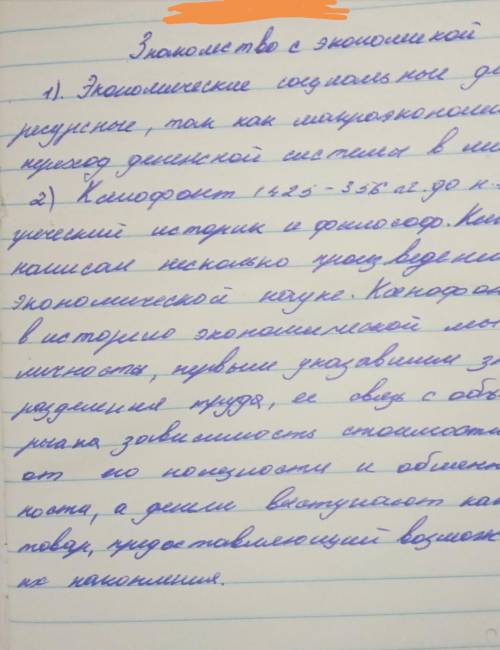 Знакомство с экономикой
1). Экономические социальные
ресурсные, так как макроэконом
переход денежной системы в ми
2) Ксенофонт (425-356 гг. до н.
греческий историк и философ. Ксе
написал несколько произведени
экономической науке. Ксенофон
в историю экономической мы
личности, первыми указавшим з
разделения труда, ее связь с объ
рынка зависимость стоимости
от его полезности и обмен
ности, а деньги выступают как
товар, предоставляющий возмож
их накопления.